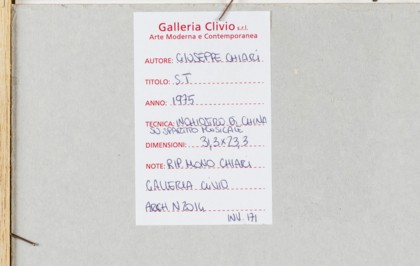 Galleria Clivio s.r.l.
Arte Moderna e Contemporanea
AUTORE: GIUSEPPE CHIARI
TITOLO: S.T.
ANNO: 1975
TECNICA: INCHIOSTRO DI CHINA
SU SPARTITO MUSICALE
DIMENSIONI: 31,3x23,3
NOTE: RIP. MONO CHIARI
GALLERIA CLIVIO
ARCH. N 2014
INV. 171